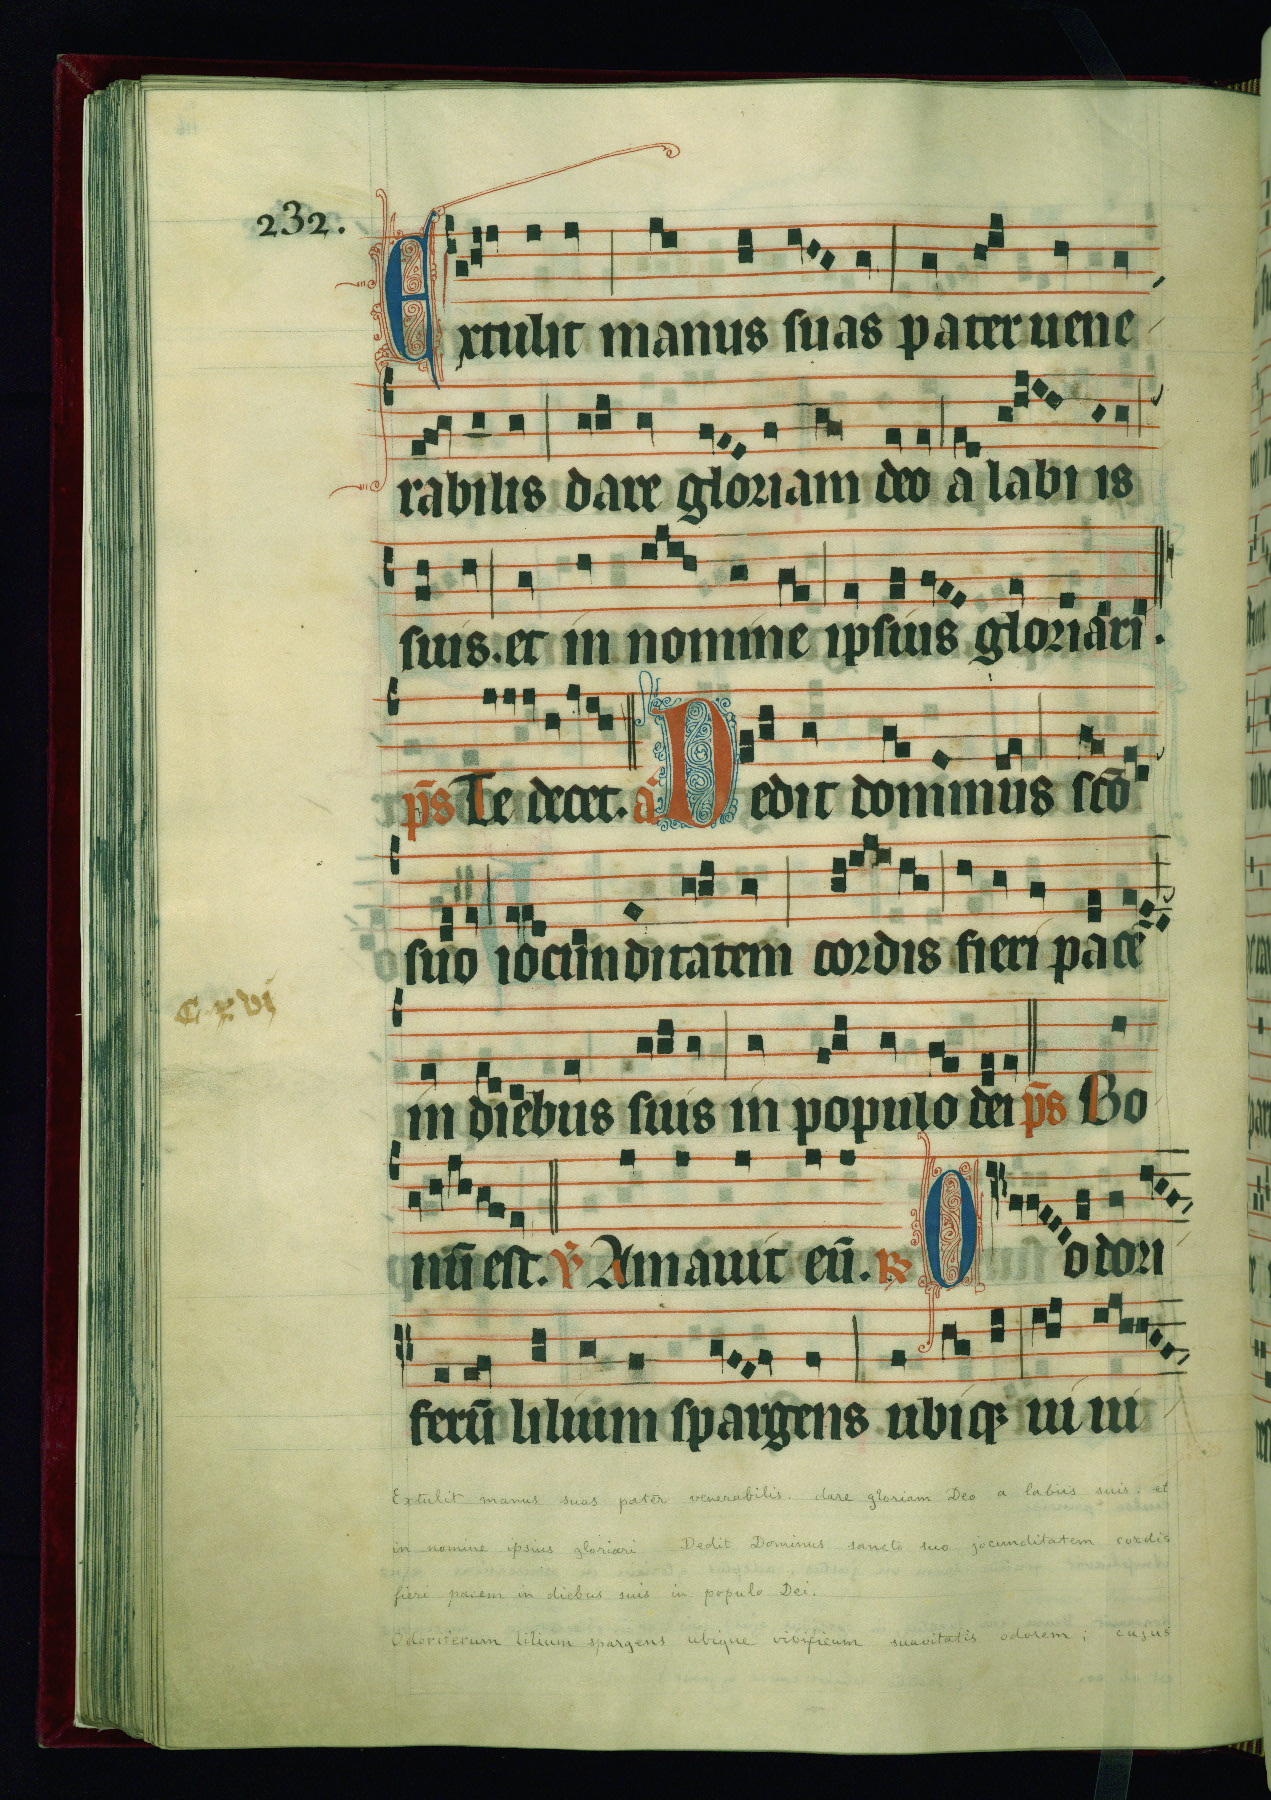 232.
Extulit manus suas pater uene
rabilis dare gloriam deo a labi is
suis. et in nomine ipsius gloriari.
p̄s Te decet. ā Dedit dominus sc̄o
suo iocunditatem cordis fieri pacē
C xvi
in diebus suis in populo dei p̄s Bo
nū est. ꝟ Amauit eū. ℟ O odori
ferū lilium spargens ubiqꝫ ui ui
Extulit manus suas pater venerabilis. dare gloriam Deo a labiis suis. et
in nomine ipsius gloriari Dedit Dominus sancto suo jocunditatem cordis
fieri pacem in diebus suis in populo Dei.
Odoriferum lilium spargens ubique vivificum suavitatis odorem; cujus